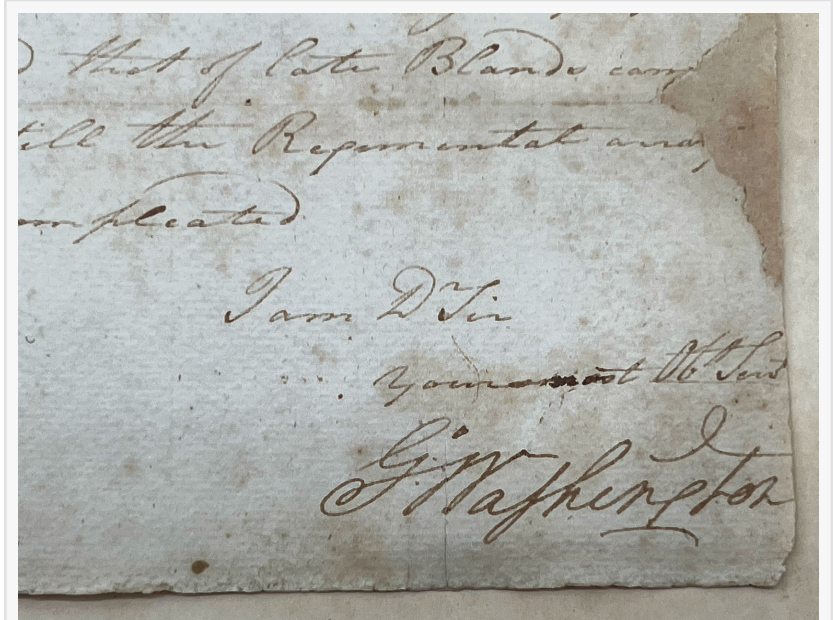 that of late Blands
till the Regimental
compleated
I am Dr Sir
Your most Obt Servt
Go Washington